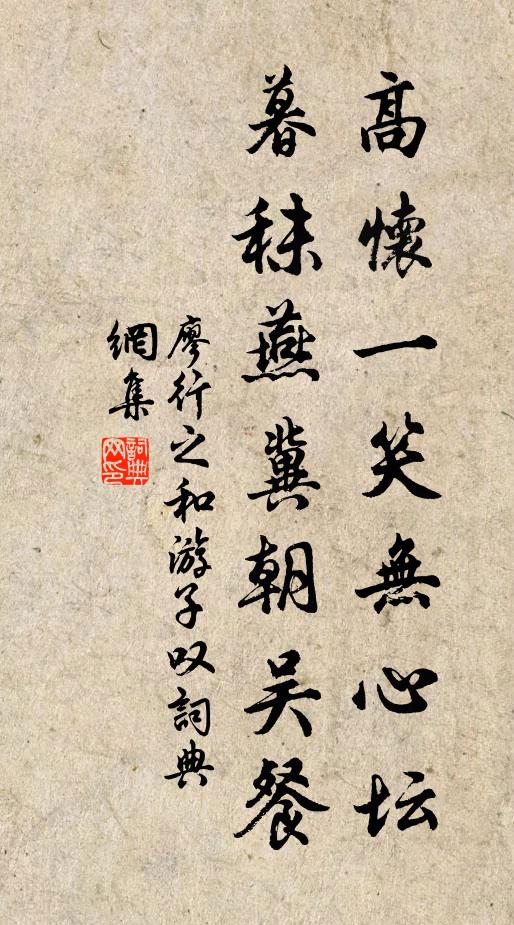 高懷一笑無心坛
暮秣燕冀朝吴餐
廖行之和游子叹詞典
網集
詞典
网印